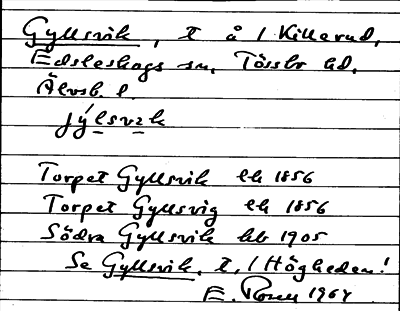 Gyllsvik, t å 1 Killerud,
Edsleskogs sn, Tössbo hd,
Älvsb. l.
jýlsvik
Torpet Gyllsvik lh 1856
Torpet Gyllsvig lh 1856
Södra Gyllsvik hb 1905
Se Gyllsvik, t, 1 Högheden!
E. Rosen 1964